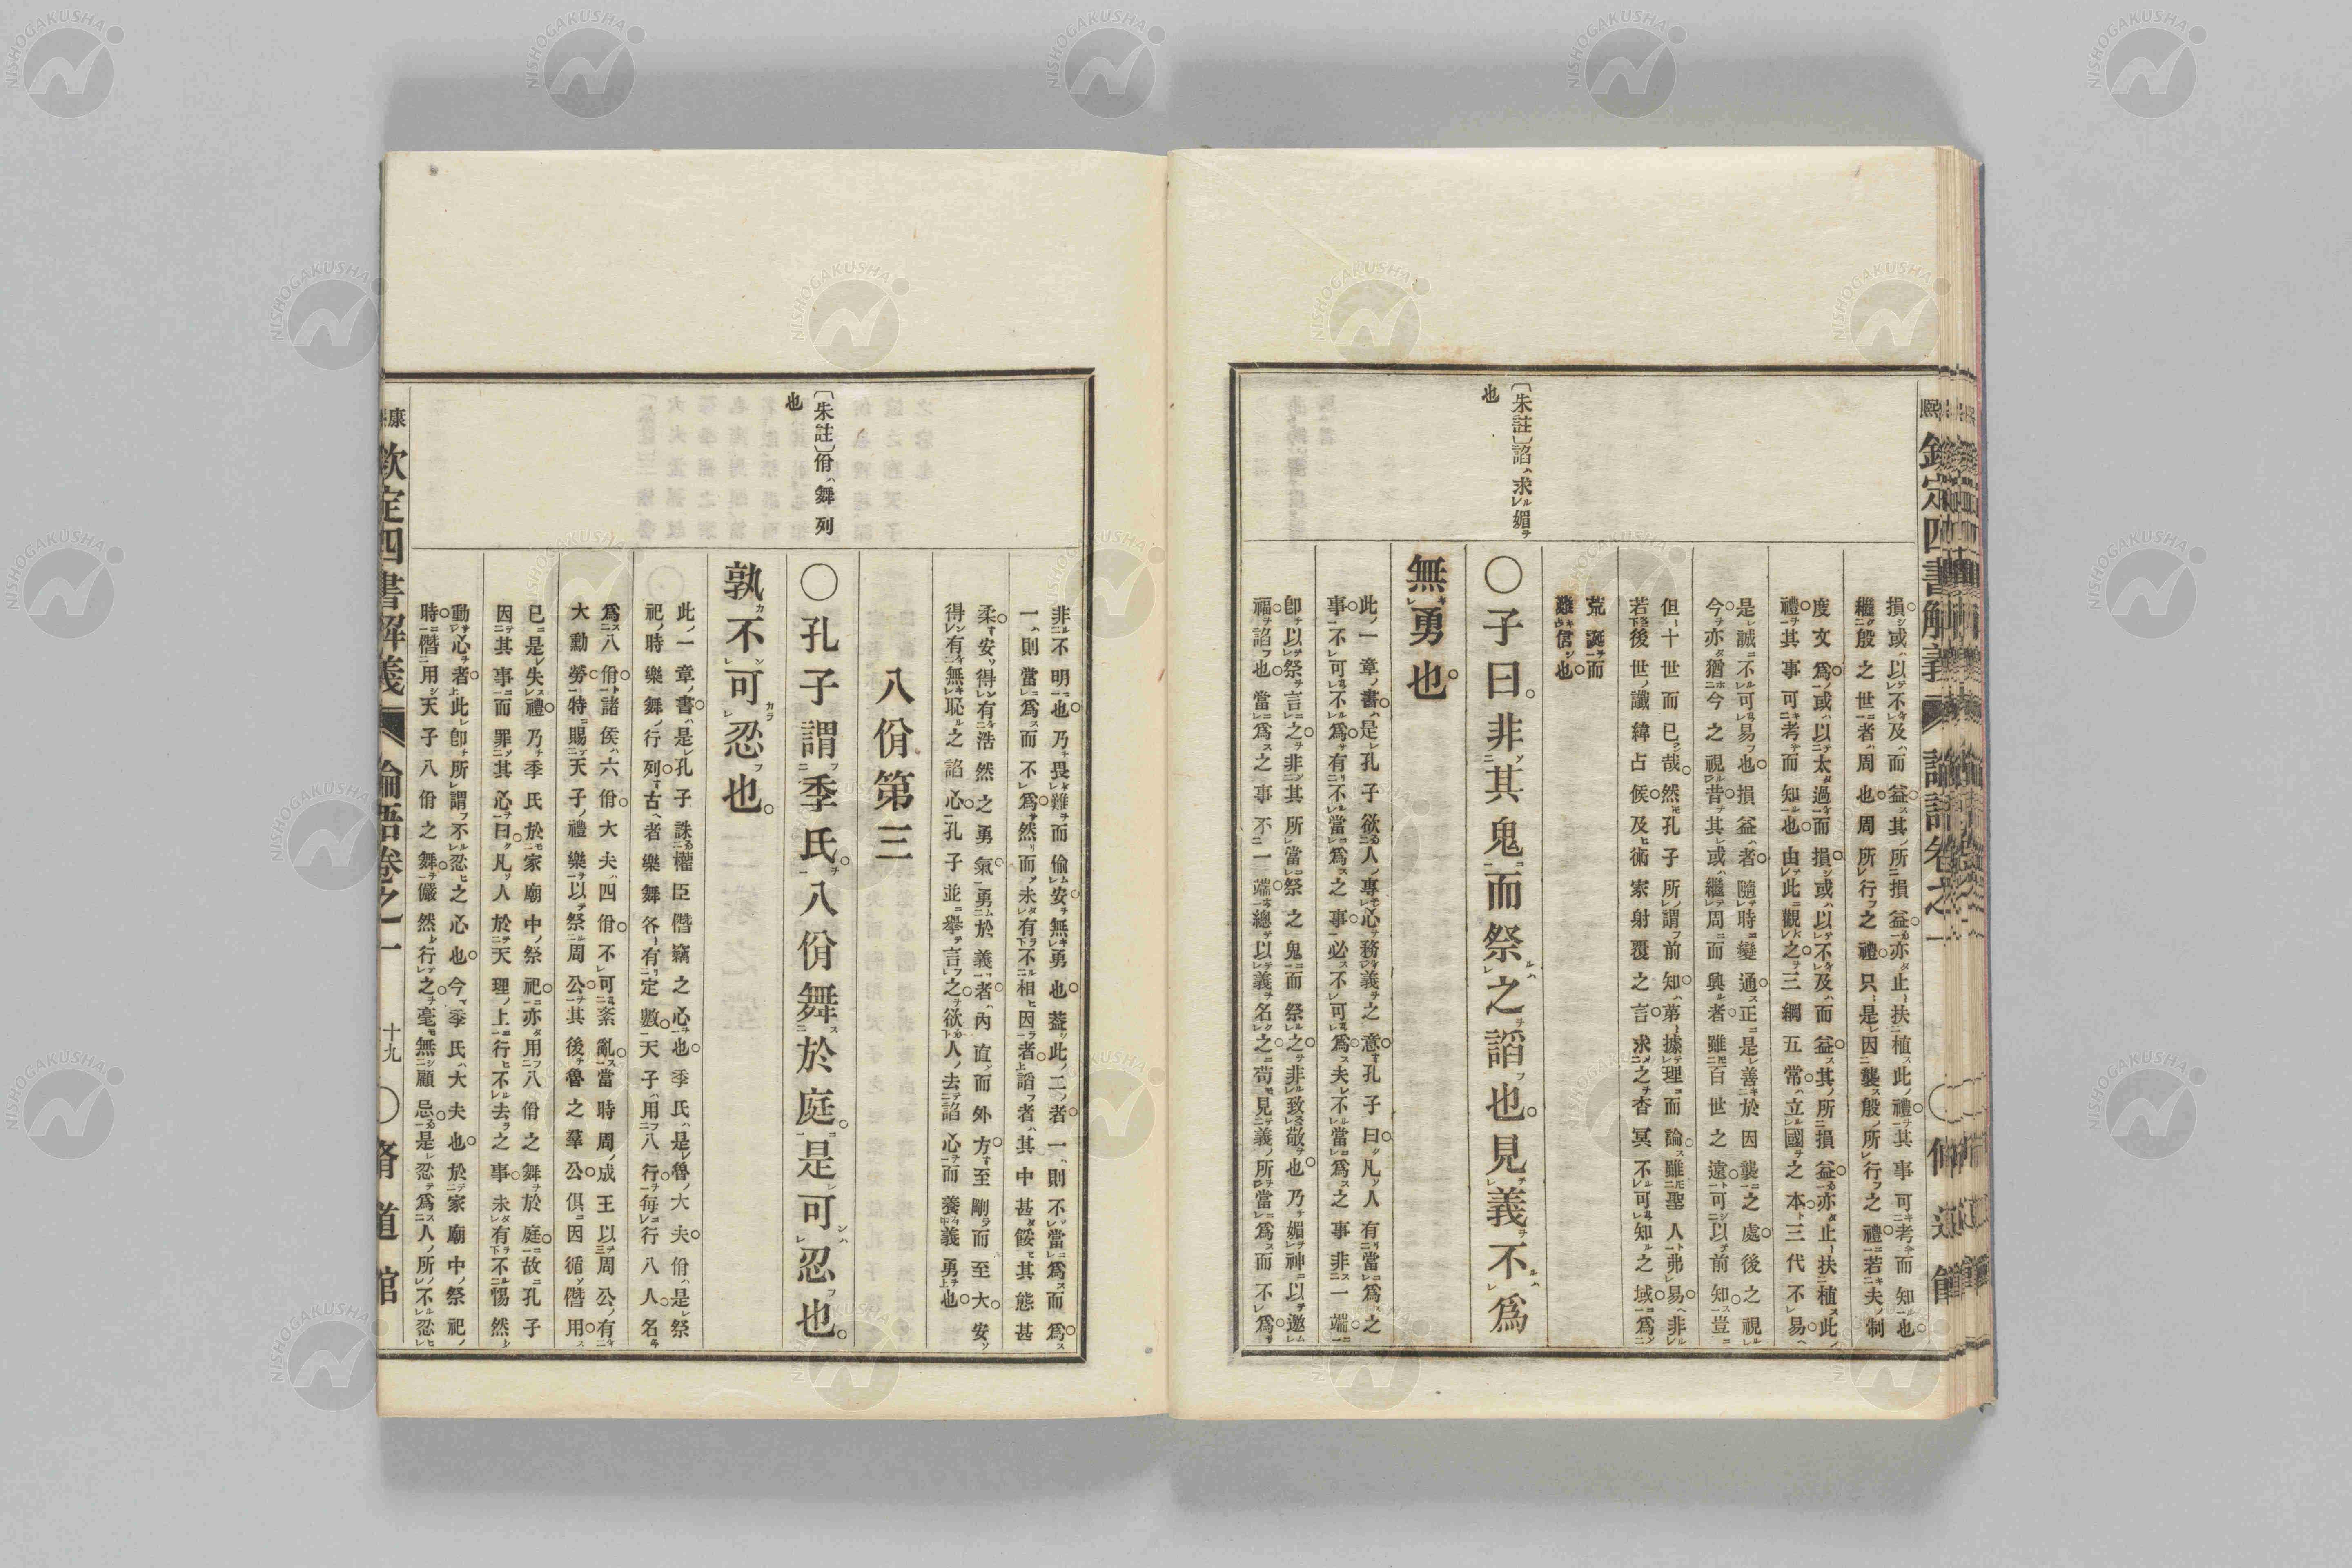 熙 欽定四書解義 論語卷之一 ○脩道館
損或以不及而益其所損益亦止扶植此禮其事可考而知也
繼殷之世者周也周所行之禮只是因襲殷所行之禮若夫制
度文爲或以太過而損或以不及而益其所損益亦止扶植此
禮其事可考而知也由此觀之三綱五常立國之本三代不易
是誠不可易也損益者隨時變通正是善於因襲之處後之視
今亦猶今之視昔其或繼周而興者雖百世之遠可以前知豈
但十世而已哉然孔子所謂前知第據理而論雖聖人弗易非
若後世讖緯占候及術家射覆之言求之杳冥不可知之域爲
荒誕而
難信也
〔朱註〕諂ハ求ルレ媚ヲ
也
○子曰。非其鬼而祭之諂也。見義不爲
無勇也。
此一章書是孔子欲人專心務義之意孔子曰凡人有當爲之
事不可不爲有不當爲之事必不可爲夫不當爲之事非一端
卽以祭言之非其所當祭之鬼而祭之非致敬也乃媚神以邀
福諂也當爲之事不一端總以義名之苟見義所當爲而不爲
非不明也乃畏難而偷安無勇也葢此二者一則不當爲而爲
一則當爲而不爲然而未有不相因者諂者其中甚餒其態甚
柔安得有浩然之勇氣勇於義者內直而外方至剛而至大安
得有無恥之諂心孔子並舉言之欲人去諂心而養義勇也
八佾第三
〔朱註〕佾ハ舞列
也
○孔子謂季氏。八佾舞於庭。是可忍也。
孰不可忍也。
此一章書是孔子誅權臣僭竊之心也季氏是魯大夫佾是祭
祀時樂舞行列古者樂舞各有定數天子用八行每行八人名
爲八佾諸侯六佾大夫四佾不可紊亂當時周成王以周公有
大勳勞特賜天子禮樂以祭周公其後魯之羣公俱因循僭用
已是失禮乃季氏於家廟中祭祀亦用八佾之舞於庭故孔子
因其事而罪其心曰凡人於天理上行不去之事未有不惕然
動心者此卽所謂不忍之心也今季氏大夫也於家廟中祭祀
時僭用天子八佾之舞儼然行之毫無顧忌是忍爲人所不忍
康熙 欽定四書解義 論語卷之一 十九 ○脩道館
NISHOGAKUSHA